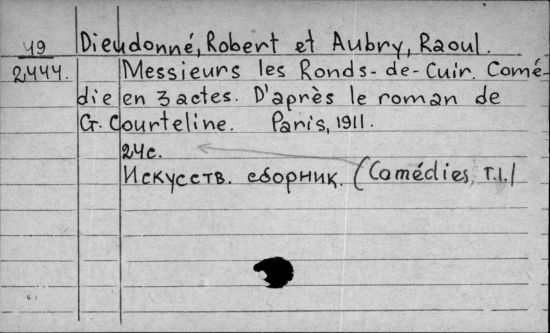 49 Dieudonné, Robert et Aubry, Raoul.
2444. Messieurs les Ronds-de-Cuir. Comé-
die en 3 actes. D'après le roman de
G. Courteline. Paris, 1911.
24с.
Искусств. сборник. (Comédies, T.I.)